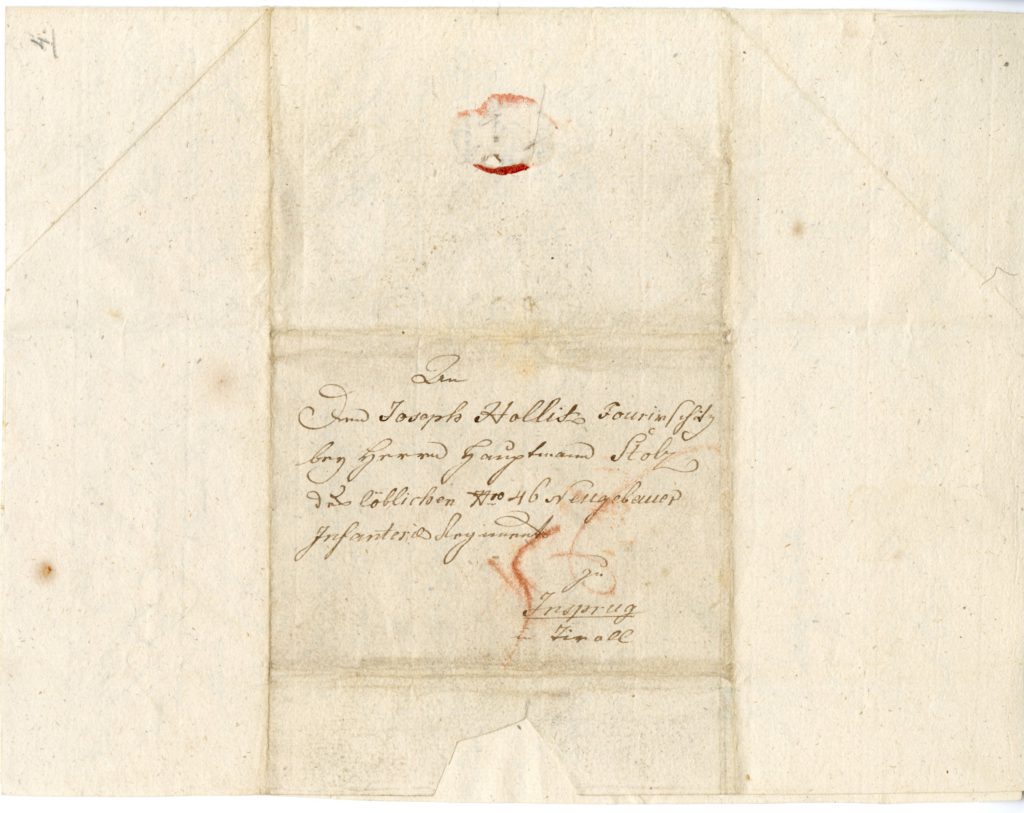 4.
An
Den Joseph Hollitz Fourirschitz
bey Herrn Hauptmann Stolz
des löblichen Nro 46 Neugebauer
Infanterie Regiment
zu
Insprug
in Tiroll